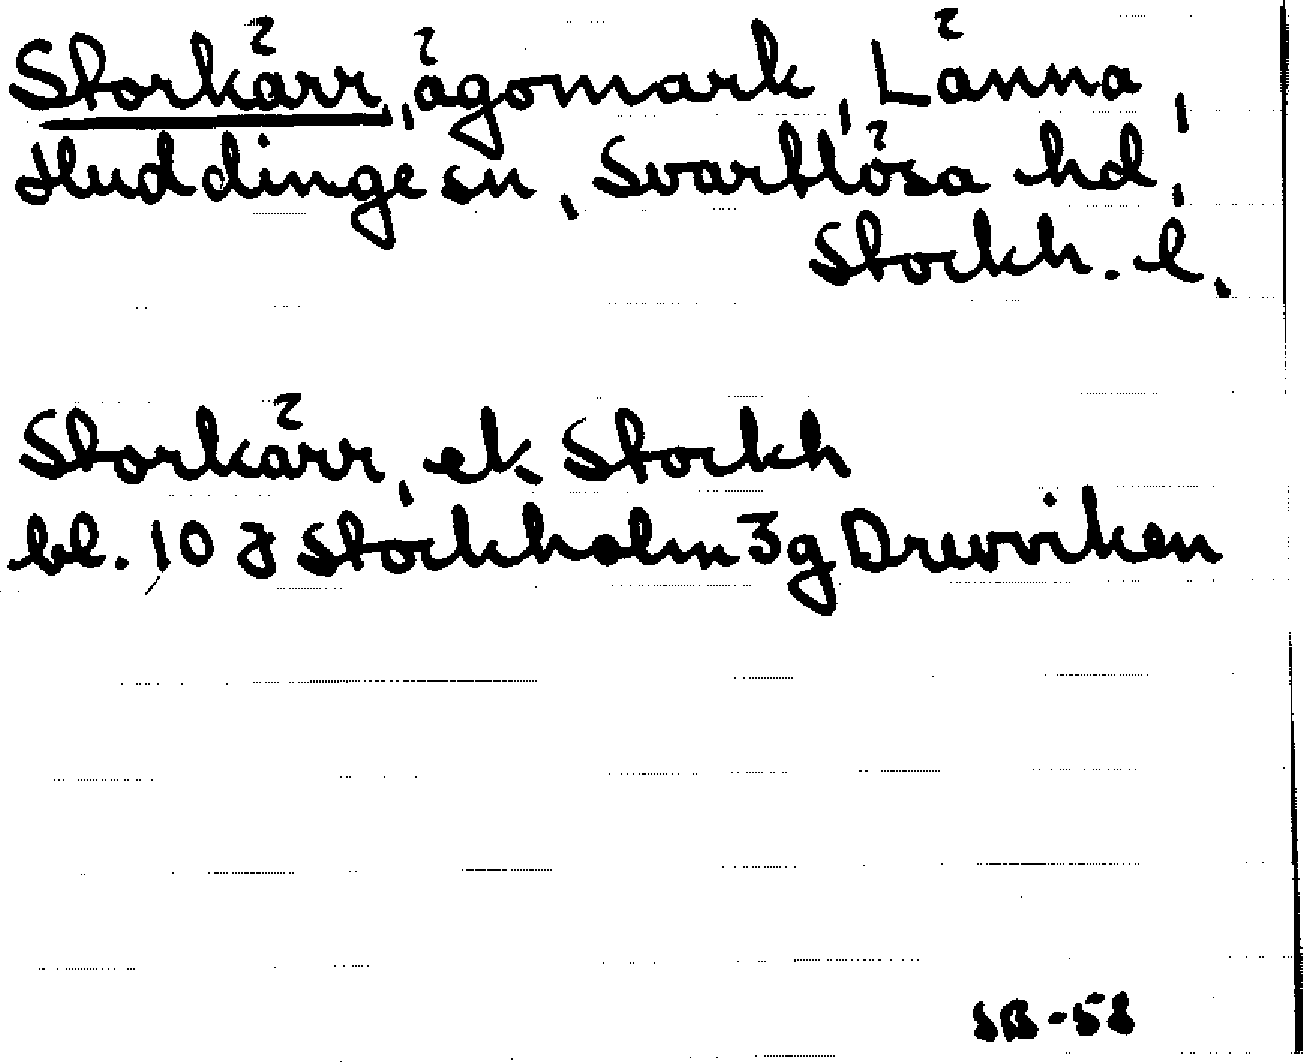 Storkärr, ägomark, Länna,
Huddinge sn, Svartlösa hd,
Stockh. l.
Storkärr, ek. Stockh
bl. 10 J Stockholm 3g Drevviken
SB-58